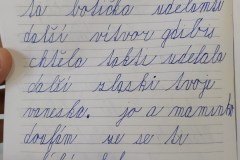 ta botička udělamti
další výtvor gdibis
chtěla takti udělala
další zlaski tvoje
vaneska. jo a maminko
doufám že se ti